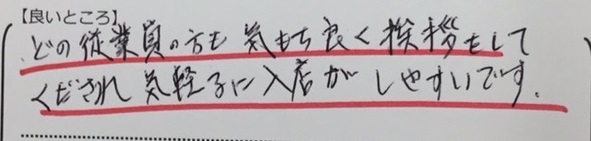 【良いところ】
どの従業員の方も気もち良く挨拶をして
くだされ気軽るに入店がしやすいです.